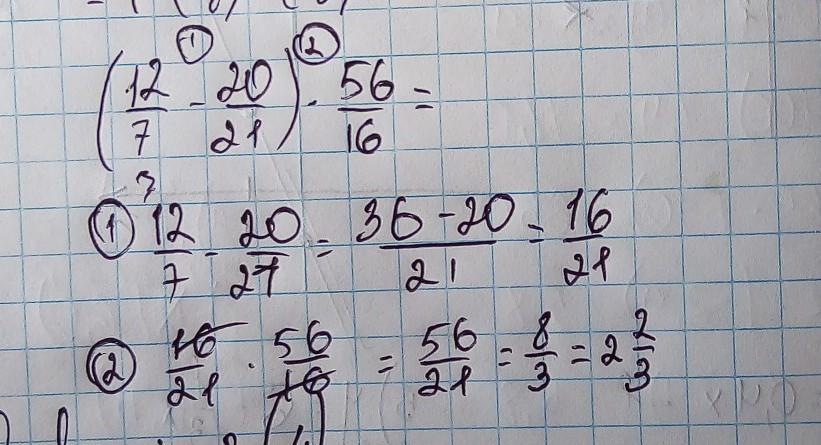 ① ②
(12/7 - 20/21) · 56/16 =
3
① 12/7 - 20/21 = (36-20)/21 = 16/21
② 16/21 · 56/16 = 56/21 = 8/3 = 2 2/3